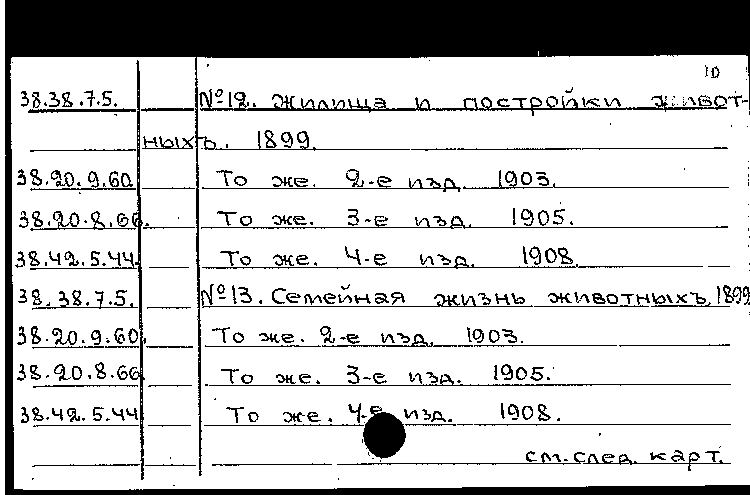 10
38.38.7.5. №12. Жилища и постройки живот-
ныхъ. 1899.
38.20.9.60. То же. 2-е изд. 1903.
38.20.8.66. То же. 3-е изд. 1905.
38.42.5.44. То же. 4-е изд. 1908.
38.38.7.5. №13. Семейная жизнь животныхъ. 1899
38.20.9.60. То же. 2-е изд. 1903.
38.20.8.66. То же. 3-е изд. 1905.
38.42.5.44 То же. 4-е изд. 1908.
см. след. карт.